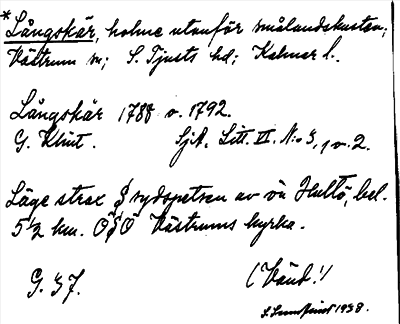 * Långskär, holme utanför smålandskusten;
Västrum sn; S. Tjusts hd; Kalmar l.
Långskär 1788 o. 1792.
G. Klint. Sjöt. Litt. II. No 3, 1 o. 2.
Läge strax S sydspetsen av ön Hultö, bel.
5 1/2 km. OSO Västrums kyrka.
G. 37. (Vänd!)
1938.